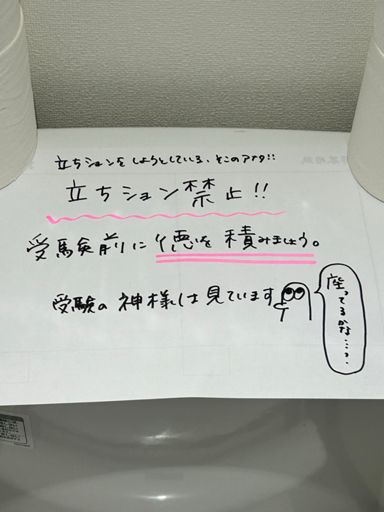 立ちションをしようとしている、そこのアナタ!!
立ちション禁止!!
受験前に徳を積みましょう。
受験の神様は見ています
座ってるかな……?